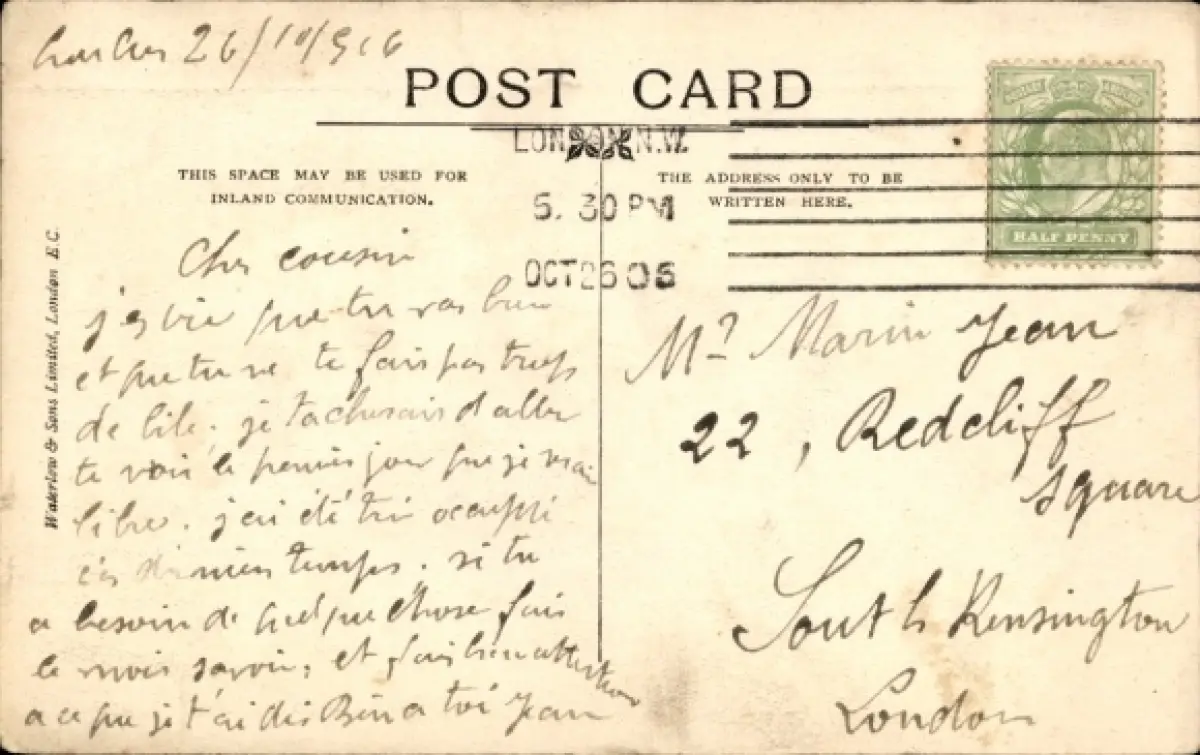 26/10/906
POST CARD
LONDON. N.W.
5. 30 PM
OCT 26 06
THIS SPACE MAY BE USED FOR
INLAND COMMUNICATION.
THE ADDRESS ONLY TO BE
WRITTEN HERE.
HALF PENNY
Waterlow & Sons Limited, London E.C.
Cher cousin
que tu vas bien
et que tu ne te fais pas trops
de bile. je tacherais d aller
te voir le premier jour que je serai
libre. j'ai été tri occuppé
ces derniers temps. si tu
a besoin de quelque chose fais
le mois savoir, et fais bien attention
a ce que je t'ai dis Bien a toi Jean
Mr Marin Jean
22, Redcliff
square
South Kensington
London